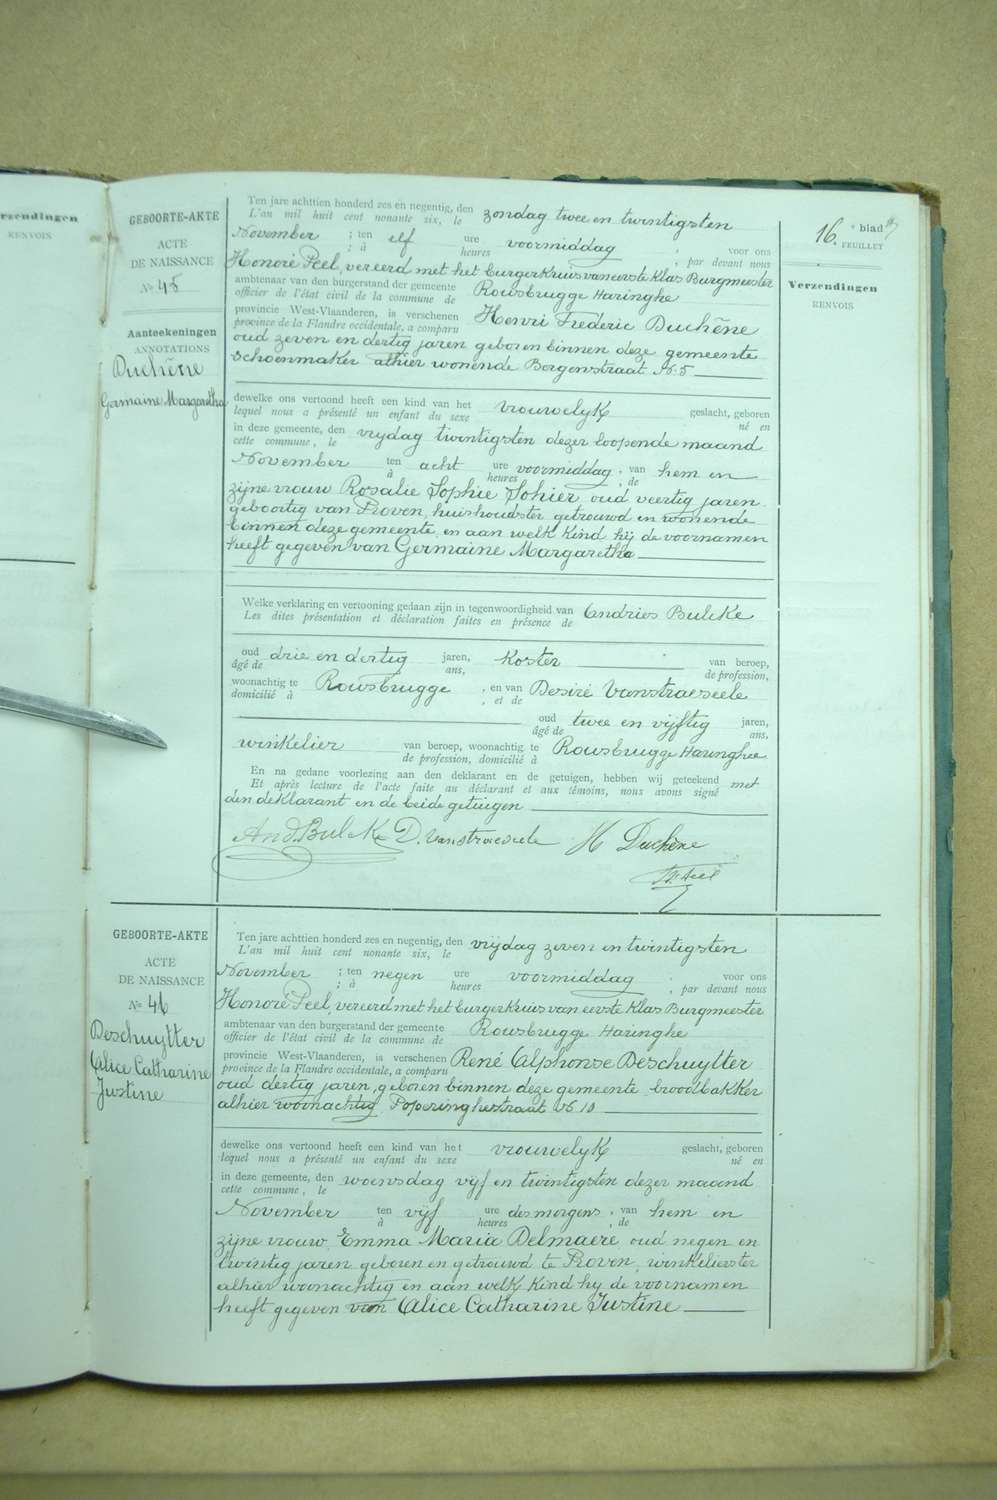 rzendingen
RENVOIS
16. blad
FEUILLET
Verzendingen
RENVOIS
GEBOORTE-AKTE
ACTE
DE NAISSANCE
No 45
Aanteekeningen
ANNOTATIONS
Duchêne
Germaine Margaretha
Ten jare achttien honderd zes en negentig, den zondag twee en twintigsten
L'an mil huit cent nonante six, le
November ; ten elf ure voormiddag voor ons
; à heures , par devant nous
Honoré Peel, vereerd met het burgerkruis van eerste klas Burgmeester
ambtenaar van den burgerstand der gemeente Rousbrugge Haringhe
officier de l'état civil de la commune de
provincie West-Vlaanderen, is verschenen Henri Frederic Duchêne
province de la Flandre occidentale, a comparu
oud zeven en dertig jaren geboren binnen deze gemeente
Schoenmaker alhier wonende Bergenstraat No 5
dewelke ons vertoond heeft een kind van het vrouwelyk geslacht, geboren
lequel nous a présenté un enfant du sexe né en
in deze gemeente, den vrydag twintigsten dezer loopende maand
cette commune, le
November ten acht ure voormiddag ; van hem en
à heures , de
zyne vrouw Rosalie Sophie Sohier oud veertig jaren
geboortig van Proven, huishoudster getrouwd en wonende
binnen deze gemeente, en aan welk kind hij de voornamen
heeft gegeven van Germaine Margaretha
Welke verklaring en vertooning gedaan zijn in tegenwoordigheid van Andries Bulcke
Les dites présentation et déclaration faites en présence de
oud drie en dertig jaren, Koster van beroep,
âgé de ans, de profession,
woonachtig te Rousbrugge , en van Desiré Vanstraeseele
domicilié à , et de
oud twee en vijftig jaren,
âgé de ans,
winkelier van beroep, woonachtig te Rousbrugge Haringhe
de profession, domicilié à
En na gedane voorlezing aan den deklarant en de getuigen, hebben wij geteekend met
Et après lecture de l'acte faite au déclarant et aux témoins, nous avons signé
den deklarant en de beide getuigen
And. Bulcke D. Vanstraeseele H Duchêne
H Peel
GEBOORTE-AKTE
ACTE
DE NAISSANCE
No 46
Deschuytter
Alice Catharine
Justine
Ten jare achttien honderd zes en negentig, den vrijdag zeven en twintigsten
L'an mil huit cent nonante six, le
November ; ten negen ure voormiddag ; voor ons
; à heures , par devant nous
Honoré Peel, vereerd met het burgerkruis van eerste klas Burgmeester
ambtenaar van den burgerstand der gemeente Rousbrugge Haringhe
officier de l'état civil de la commune de
provincie West-Vlaanderen, is verschenen René Alphonse Deschuytter
province de la Flandre occidentale, a comparu
oud dertig jaren, geboren binnen deze gemeente broodbakker
alhier woonachtig Poperinghestraat No 10
dewelke ons vertoond heeft een kind van het vrouwelyk geslacht, geboren
lequel nous a présenté un enfant du sexe né en
in deze gemeente, den woensdag vijf en twintigsten dezer maand
cette commune, le
November ten vijf ure des morgens ; van hem en
à heures , de
zyne vrouw, Emma Maria Delmaere, oud negen en
twintig jaren geboren en getrouwd te Proven, winkelierster
alhier woonachtig en aan welk kind hy de voornamen
heeft gegeven van Alice Catharine Justine